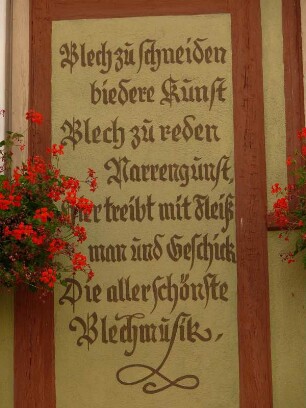 Blech zu schneiden
biedere Kunst
Blech zu reden
Narrengunst,
treibt mit Fleiß
man und Geschick
Die allerschönste
Blechmusik.